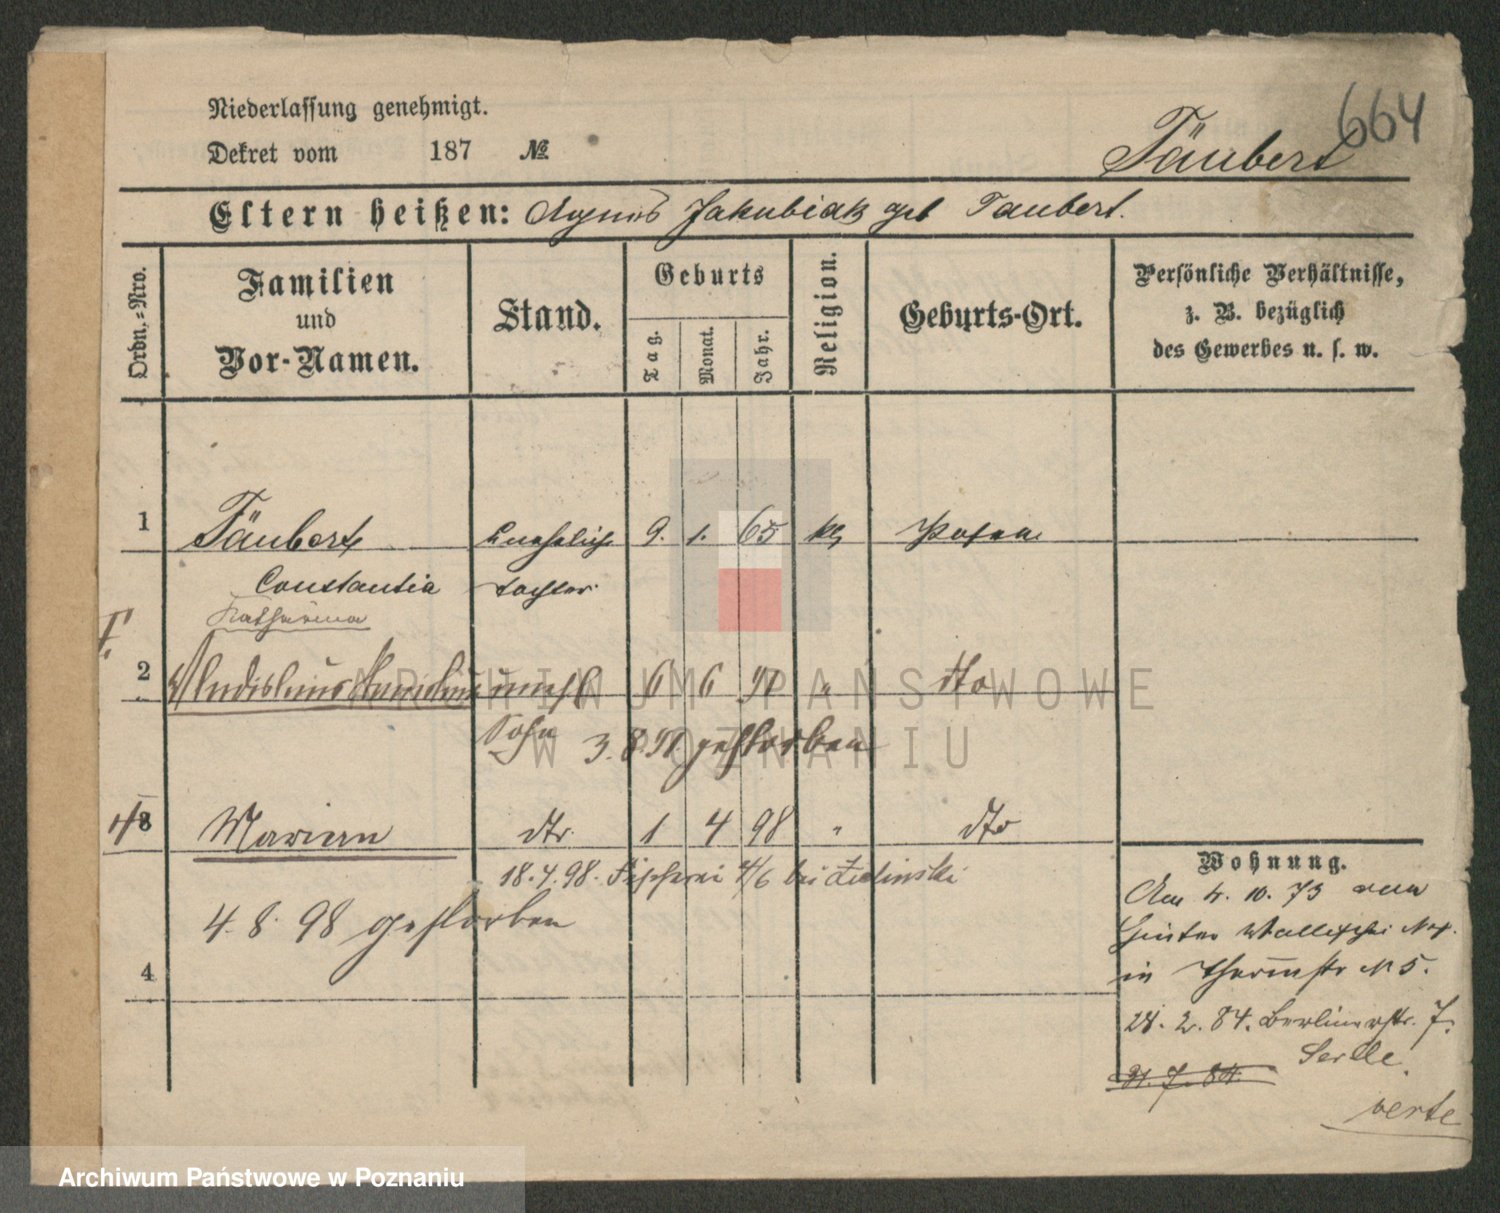 664
Niederlassung genehmigt.
Dekret vom 187 №
Täubert
Eltern heißen: Agnes Jakubiak geb Taubert.
Ordn.-Nro.
Familien und Vor-Namen.
Stand.
Geburts
Tag.
Monat.
Jahr.
Religion.
Geburts-Ort.
Persönliche Verhältnisse,
z. B. bezüglich
des Gewerbes u. s. w.
1 Täubert unehelich 9. 1. 65 kth Posen
Constantia tochter
Katharina
2 Wladislaus unehl 6 6 91 " dto
Sohn 3.8.91. gestorben
3 Marian dto. 1 4 98 " dto
18.4.98. Fischerei 4/6 bei Zielinski
4. 8. 98 gestorben
4
Wohnung.
Am 4. 10. 73 von
Hinter Wallischei
in Thurmstr № 5.
28. 2. 84. Berlinerstr. 7.
31. 7. 84.
verte
ARCHIWUM PAŃSTWOWE
W POZNANIU
Archiwum Państwowe w Poznaniu